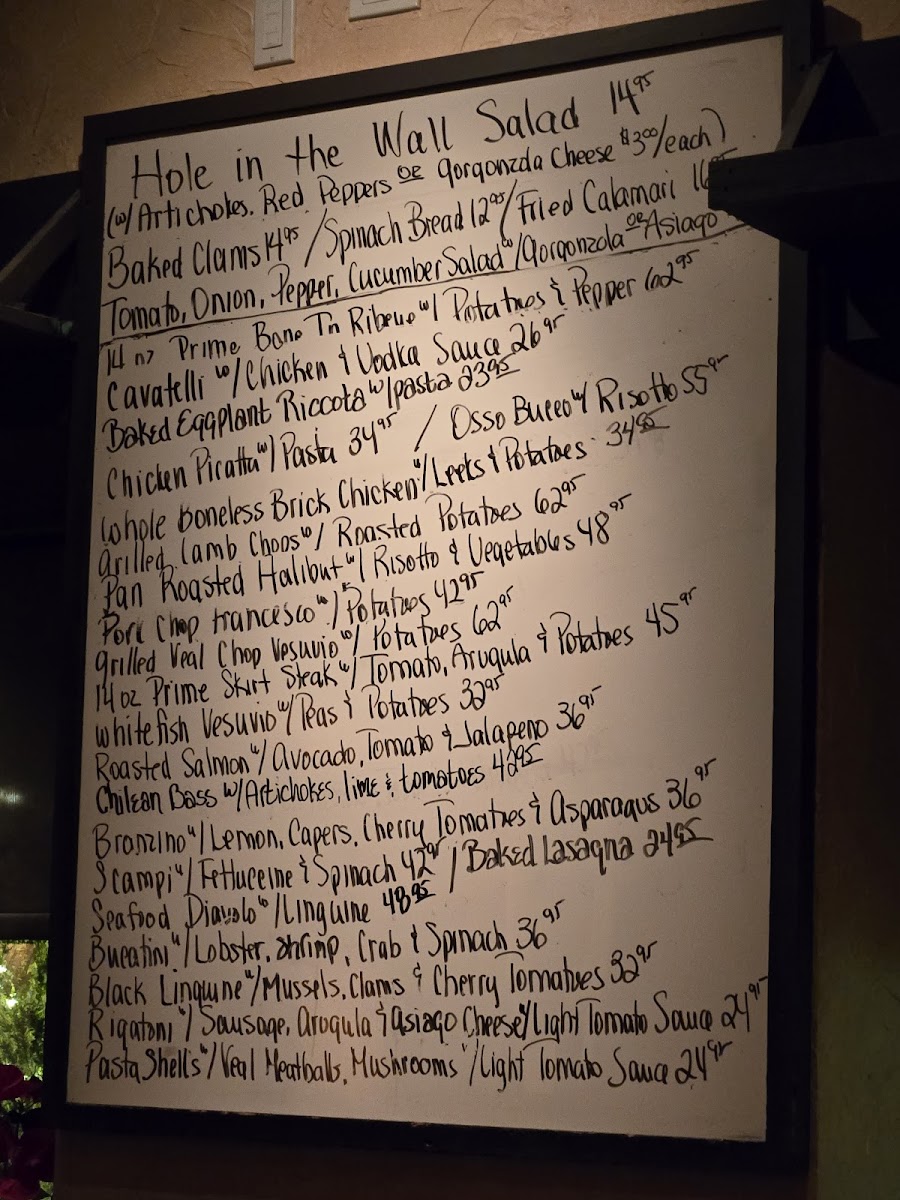 Hole in the Wall Salad 14.95
(w/Artichokes. Red Peppers or Gorgonzola Cheese $3.00/each)
Baked Clams 14.95 / Spinach Bread 12.95 / Fried Calamari 16
Tomato, Onion, Pepper, Cucumber Salad w/Gorgonzola or Asiago
14 oz Prime Bone In Ribeye w/ Potatoes & Pepper 62.95
Cavatelli w/Chicken & Vodka Sauce 26.95
Baked Eggplant Riccota w/pasta 23.95
Chicken Picatta w/ Pasta 34.95 / Osso Bucco w/ Risotto 55.95
Whole Boneless Brick Chicken w/Leeks & Potatoes 34.95
Grilled Lamb Chops w/ Roasted Potatoes 62.95
Pan Roasted Halibut w/ Risotto & Vegetables 48.95
Pork Chop Francesco w/ Potatoes 42.95
Grilled Veal Chop Vesuvio w/ Potatoes 62.95
14 oz Prime Skirt Steak w/ Tomato, Arugula & Potatoes 45.95
Whitefish Vesuvio w/Peas & Potatoes 32.95
Roasted Salmon w/ Avocado, Tomato & Jalapeno 36.95
Chilean Bass w/Artichokes, lime & tomatoes 42.95
Branzino w/Lemon, Capers, Cherry Tomatoes & Asparagus 36.95
Scampi w/Fettuccine & Spinach 42.95 / Baked Lasagna 24.95
Seafood Diavolo w/Linguine 48.95
Bucatini w/Lobster, Shrimp, Crab & Spinach 36.95
Black Linguine w/Mussels, Clams & Cherry Tomatoes 32.95
Rigatoni w/Sausage, Arugula & Asiago Cheese w/Light Tomato Sauce 24.95
Pasta Shells w/Veal Meatballs, Mushrooms w/Light Tomato Sauce 24.95